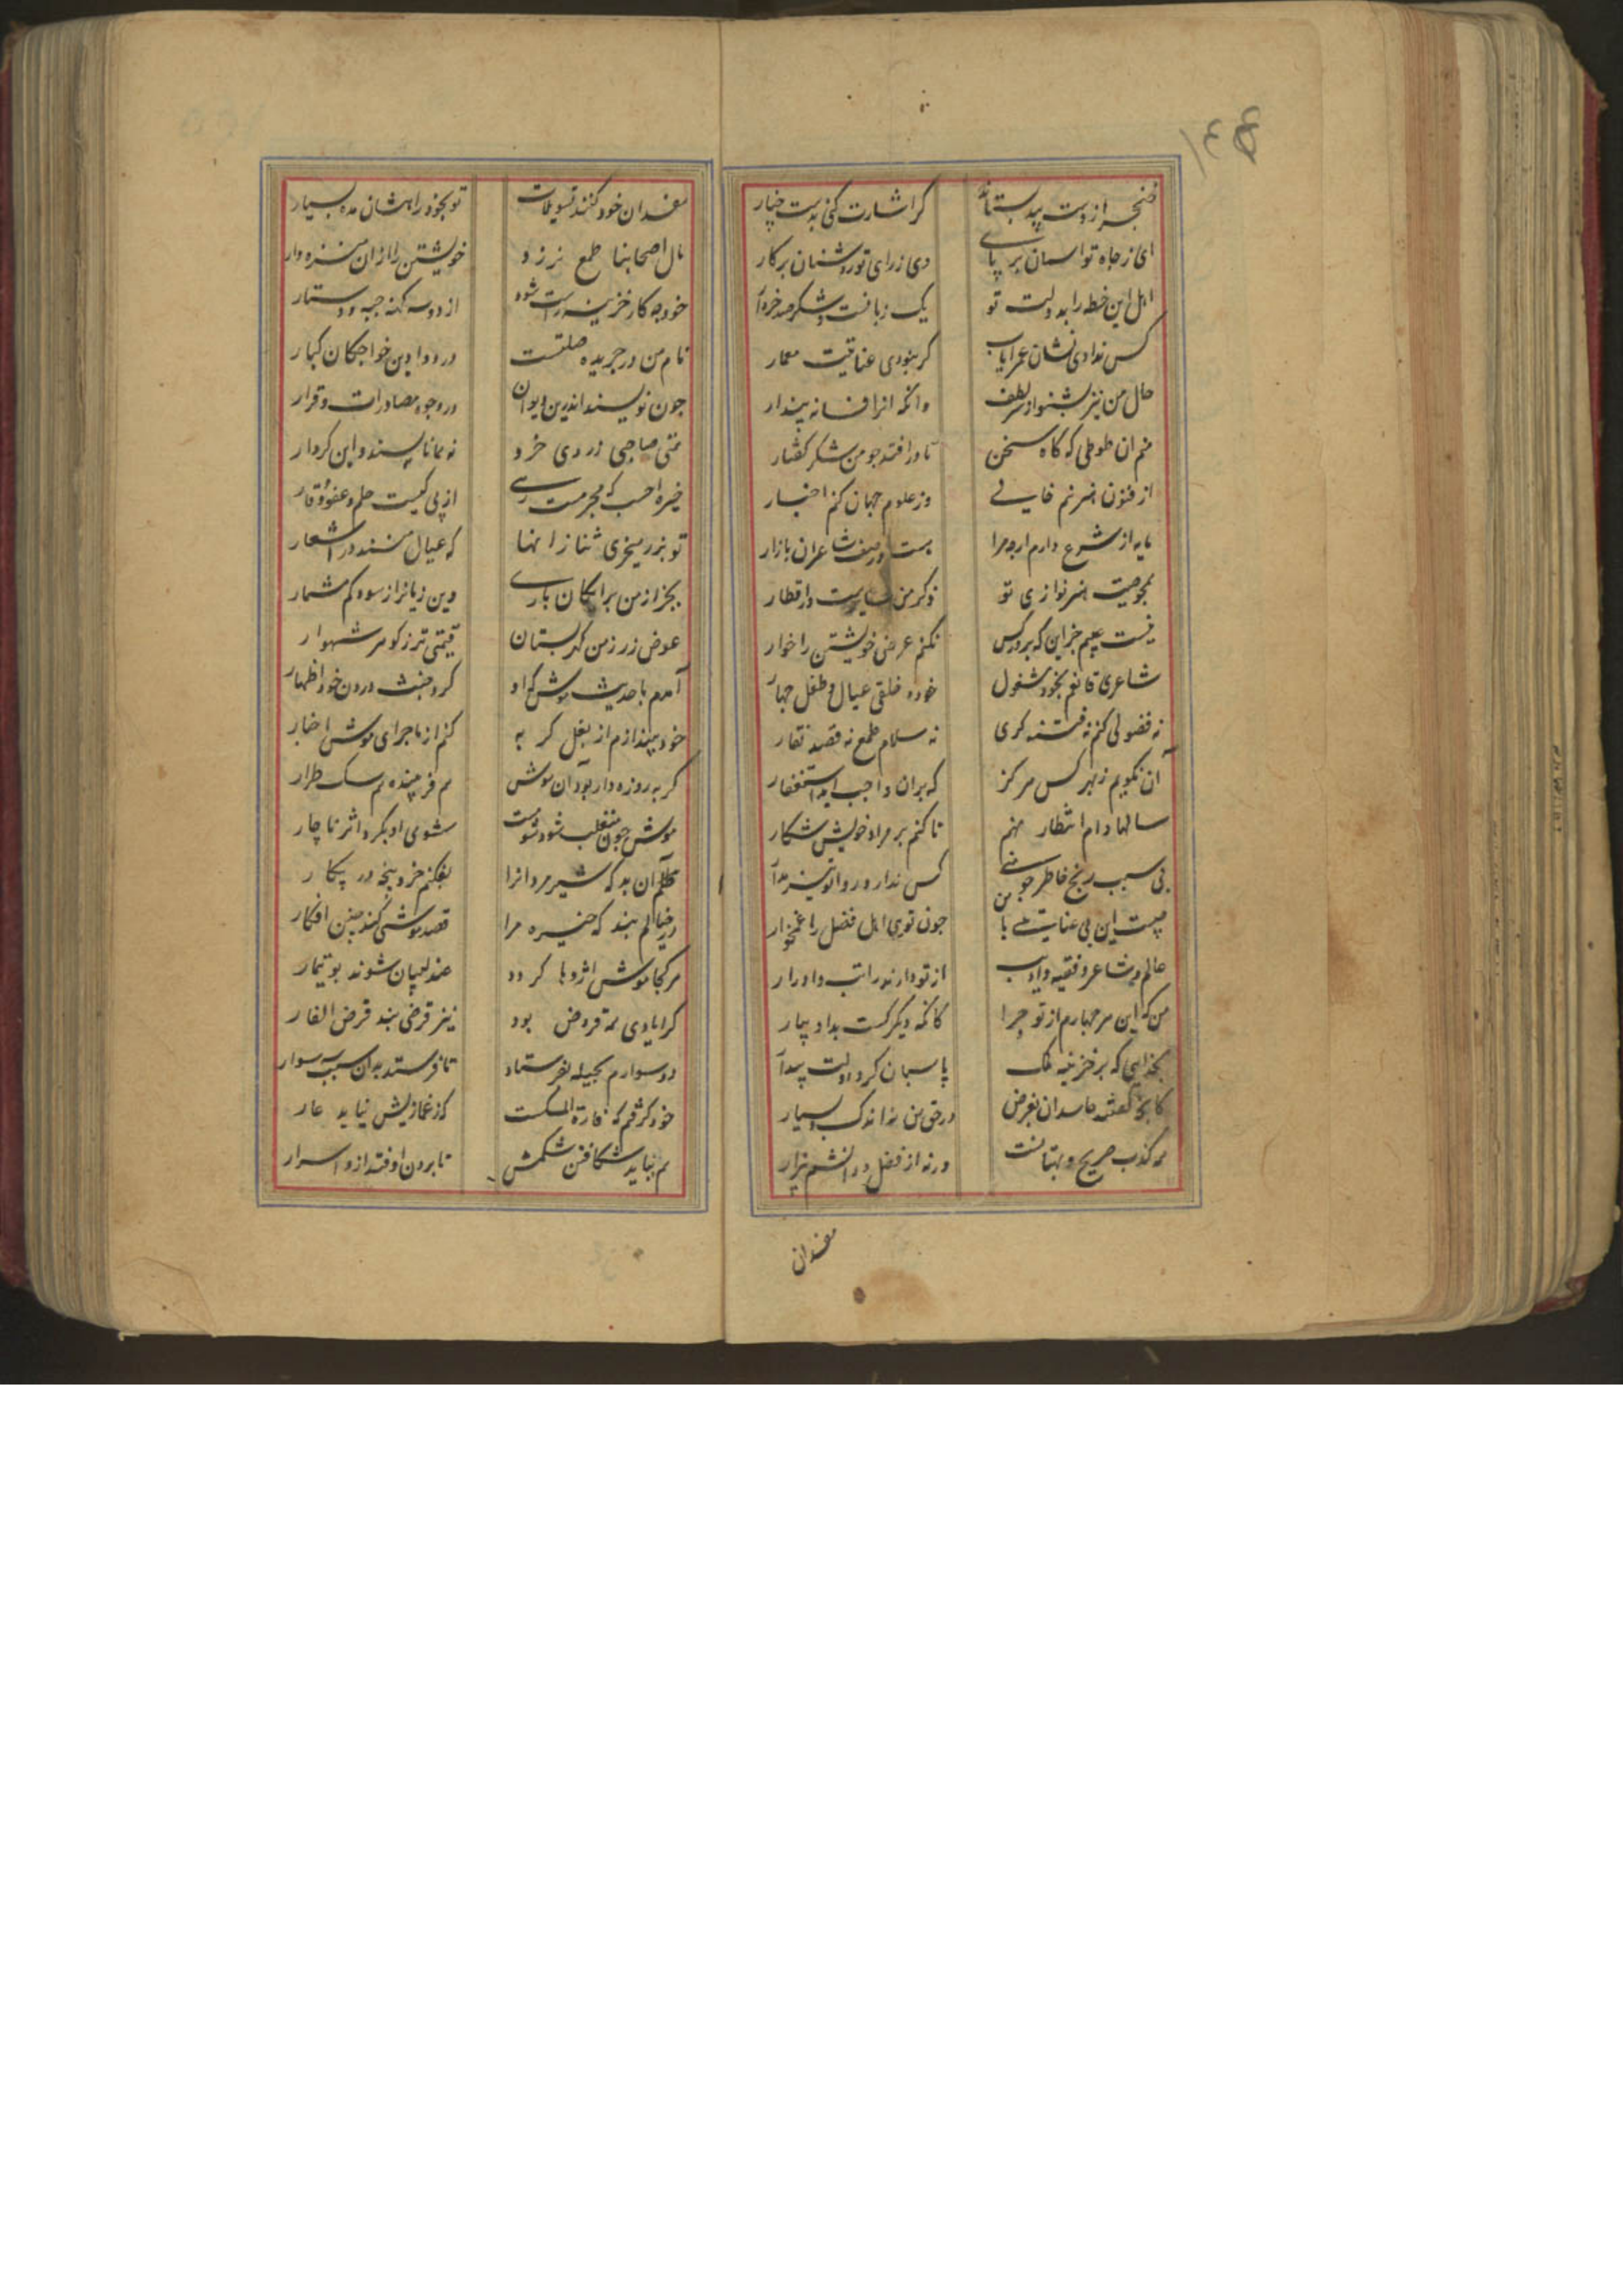 خنجر از دست بید بستاند
کر اشارت کنی بدست چنار
ای ز جاه تو اسمان بر پای
وی ز رای تو روشنان بر کار
اهل این خطه را بدولت تو
یک زبانست و شکر صد خروار
کس ندادی نشان عمر ایاب
کر نبودی عنایتت معمار
حال من نیز بشنو از سر لطف
وانکه انرا فسانه پندار
منم ان طوطی که کاه سخن
نادر افتد جو من شکر کفتار
از فنون هنر نیم خالی
وز علوم جهان کنم اخبار
مایه از شرع دارم ارچه مرا
هست در صف شاعران بازار
بمجرد صیت هنر نوازی تو
ذکر من سایرست در اقطار
نیست عیبم جز این که بر در کس
نکنم عرض خویشتن را خوار
شاعری قانعم بخود مشغول
خورده خلقی عیال و طفل جهار
نه فضولی کنم نه فتنه کری
نه سلام طمع نه قصد نقار
آن نکویم ز بهر کس هرکز
که بران واجب اید استغفار
سالها دام انتظار نهم
تا کنم بر مراد خویش شکار
بی سبب رنج خاطر جو منی
کس ندارد روا تو نیز مدار
چیست این بی عنایتی با من
جون تویی اهل فضل را غمخوار
عالم و شاعر و فقیه و ادیب
از تو دارند راتب و ادرار
من که این هر جهارم از تو چرا
بخدایی که بر خزینه ملک
پاسبان کرد دولت بیدار
کانچه کفتند حاسدان بغرض
در حق من ز اندک و بسیار
همه کذب صریح و بهتانست
ورنه از فضل و دانشم بیزار
مفسدان
مفسدان خود کنند تسویلات
تو بخود راهشان مده بسیار
مال اصحابنا طمع نرزد
خویشتن را ازان منزه دار
خود جه کار خزینه راست شود
از دو سه کهنه جبه و دستار
نام من در جریده صلتست
در دواوین خواجکان کبار
جون نویسند اندرین دیوان
در وجوه مصادرات و قرار
نه همانا پسندد این کردار
خیره احسب که مجرمست رهی
از پی کیست حلم و عفو و وقار
تو بزر میخری ثنا ز انها
که عیال منند در اشعار
بخر از من برایکان باری
وین زیانرا ز سود کم مشمار
عوض زر ز من کهر بستان
قیمتی تر ز کوهر شهوار
آمدم با حدیث موش که او
کرد خبث درون خود اظهار
خود بیندازم از بغل کربه
کنم از ماجرای موش اخبار
کربه روزه دار بود آن موش
هم فریبنده هم سک طرار
موش جون منقلب شود شومست
شومی او بکرد اثر ناچار
قلم آن بد که شیر مردانرا
بفکنم خرد پنجه در پیکار
در خیالم نبد که خیره مرا
قصد موشی کند جنین افکار
هرکجا موش اژدها کردد
عندلیبان شوند بوتیمار
کر ایادی همه قروض بود
نیز قرضی بند قرض الفار
دو سوارم بحیله نفرستاد
تا فرستد بدان سبب سوار
خود کرفتم که فارة المسکست
کز غمازیش نیاید عار
هم بباید شکافتن شکمش
تا برون اوفتد ازو اسرار